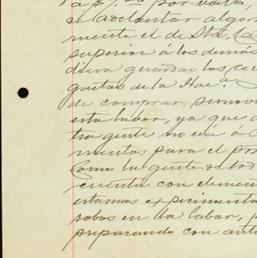 a p/. es por visita,
se acrecentar algor
mente el de Sta. Ca
superior á los demás
diera guardar las cer
quitas de la Hac.a S
de comprar
esta labor, ya que d
tra gente no va á C
mientos para el pro
Como la gente de sod
cuenta con elemen
estamos experimenta
robos en la labor, p
preparando con anti